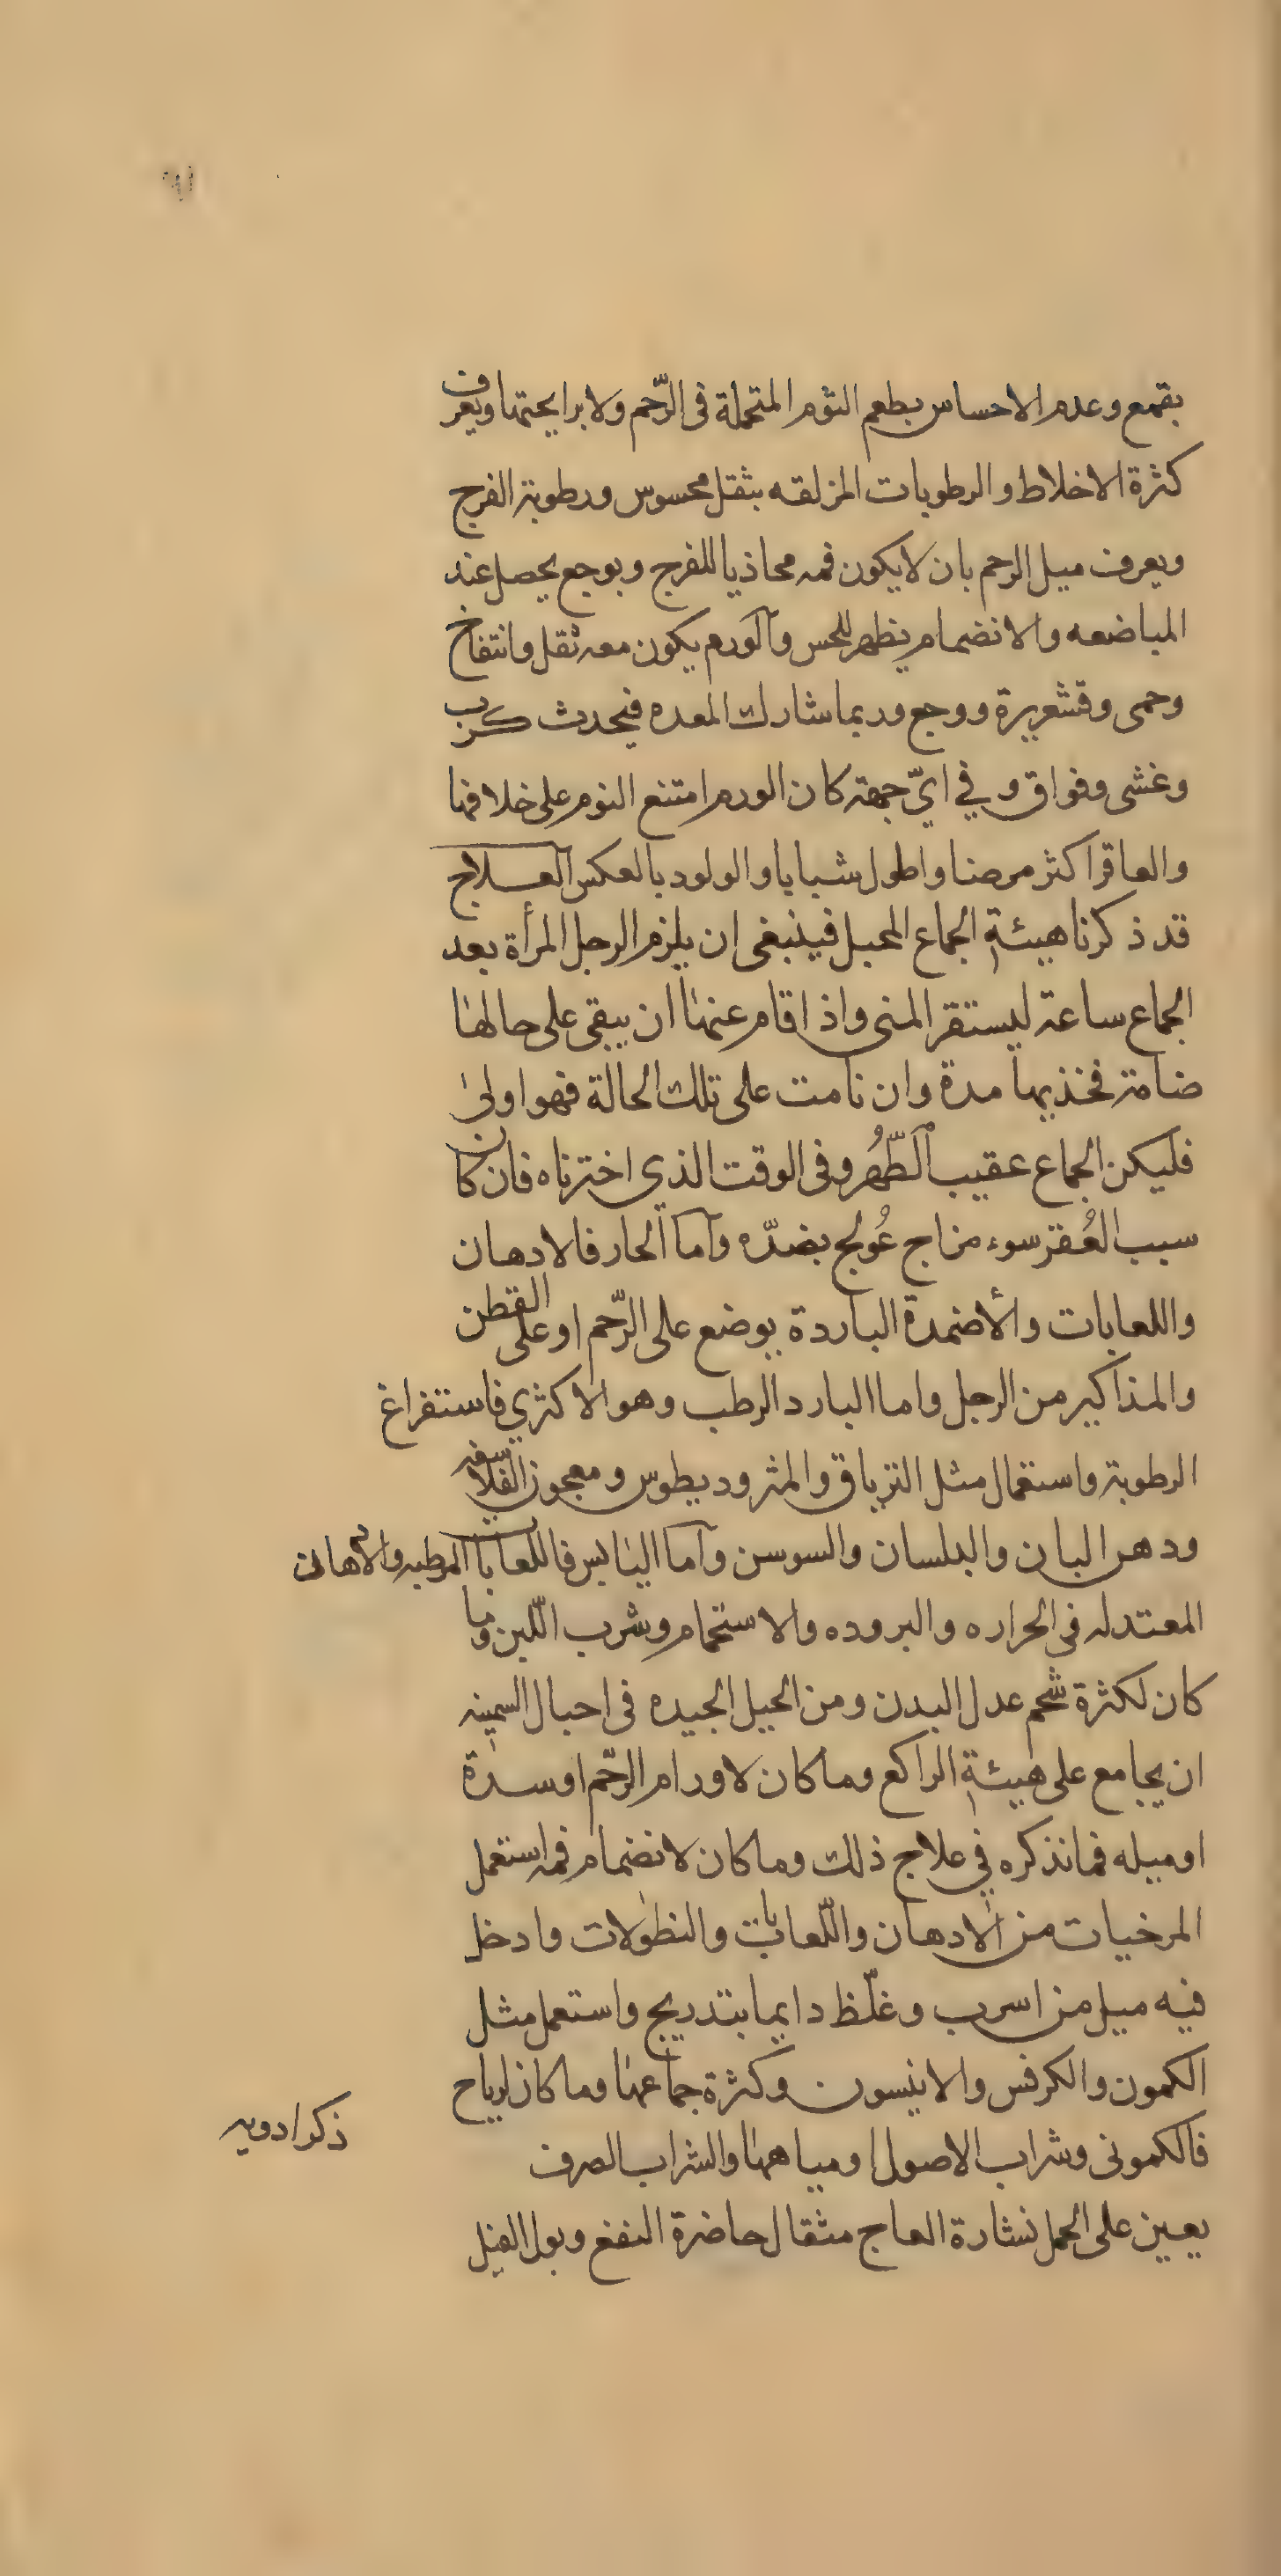 بقمع وعدم الاحساس بطعم الثوم المتحملة فى الرّحم ولا برايحتها ويعرف
كثرة الاخلاط والرطوبات المزلقه بثقل محسوس ورطوبة الفرج
ويعرف ميل الرحم بان لا يكون فمه محاذيا للفرج وبوجع يحصل عند
المباضعه والانضمام يظهر للحس والورم يكون معه ثقل وانتفاخ
وحمى وقشعريرة ووجع وربما شارك المعده فيحدث كرب
وغشى وفواق وفي ايّ جهة كان الورم امتنع النوم على خلافها
والعاقر اكثر مرضا واطول شبابا والولود بالعكس العلاج
قد ذكرنا هيئة الجماع المحبل فينبغى ان يلزم الرجل المرأة بعد
الجماع ساعة ليستقر المنى واذا قام عنها ان يبقى على حالها
ضامة فخذيها مدة وان نامت على تلك الحالة فهو اولى
فليكن الجماع عقيب الطّهُر وفى الوقت الذي اخترناه فان كان
سبب العُقر سوء مزاج عُولج بضدّه واما الحار فالادهان
واللعابات والأضمدة الباردة يوضع على الرّحم او على القطن
والمذاكير من الرجل واما البارد الرطب وهو الاكثري فاستفراغ
الرطوبة واستعمال مثل الترياق والمثروديطوس ومعجون الفلاسفه
ودهن البان والبلسان والسوسن واما اليابس فاللعابات المرطبه والادهان
المعتدله فى الحراره والبروده والاستحمام وشرب اللّبن وما
كان لكثرة شحم عدل البدن ومن الحيل الجيده فى احبال السمينه
ان يجامع على هيئة الراكع وما كان لاورام الرّحم او سدة
او ميله فما نذكره في علاج ذلك وما كان لانضمام فمه استعمل
المرخيات من الادهان واللّعابات والنطولات وادخل
فيه ميل من اسرب وغلّظ دايما بتدريج واستعمل مثل
الكمون والكرفس والانيسون وكثرة جماعها وما كان لرياح
فالكمونى وشراب الاصول او مياهها والشراب الصرف
ذكر ادويه
يعين على الحمل نشارة العاج مثقال حاضرة النفع وبول الفيل